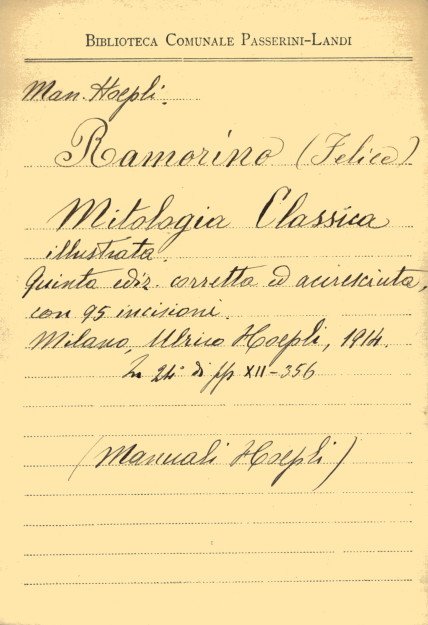 BIBLIOTECA COMUNALE PASSERINI-LANDI
Man. Hoepli.
Ramorino (Felice)
Mitologia Classica
illustrata.
Quinta ediz. corretta ed accresciuta,
con 95 incisioni.
Milano, Ulrico Hoepli, 1914.
In 24° di pp XII-356
(Manuali Hoepli)